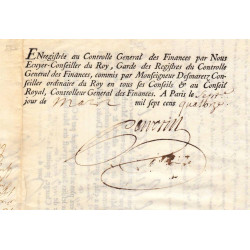 ENregistrée au Controlle General des Finances par Nous
Ecuyer-Conseiller du Roy, Garde des Registres du Controlle
General des Finances, commis par Monseigneur Desmaretz Con-
seiller ordinaire du Roy en tous ses Conseils & au Conseil
Royal, Controlleur General des Finances. A Paris le
jour de mars mil sept cens quatorze